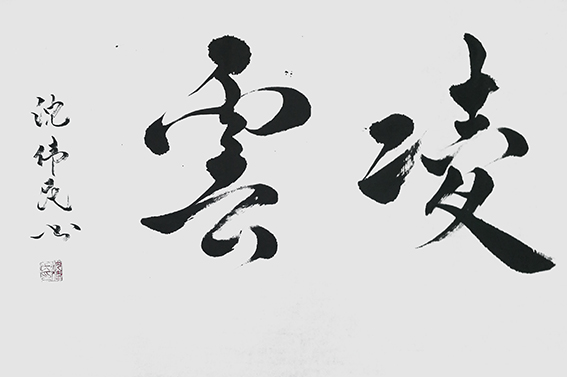 凌雲
沈伟民书